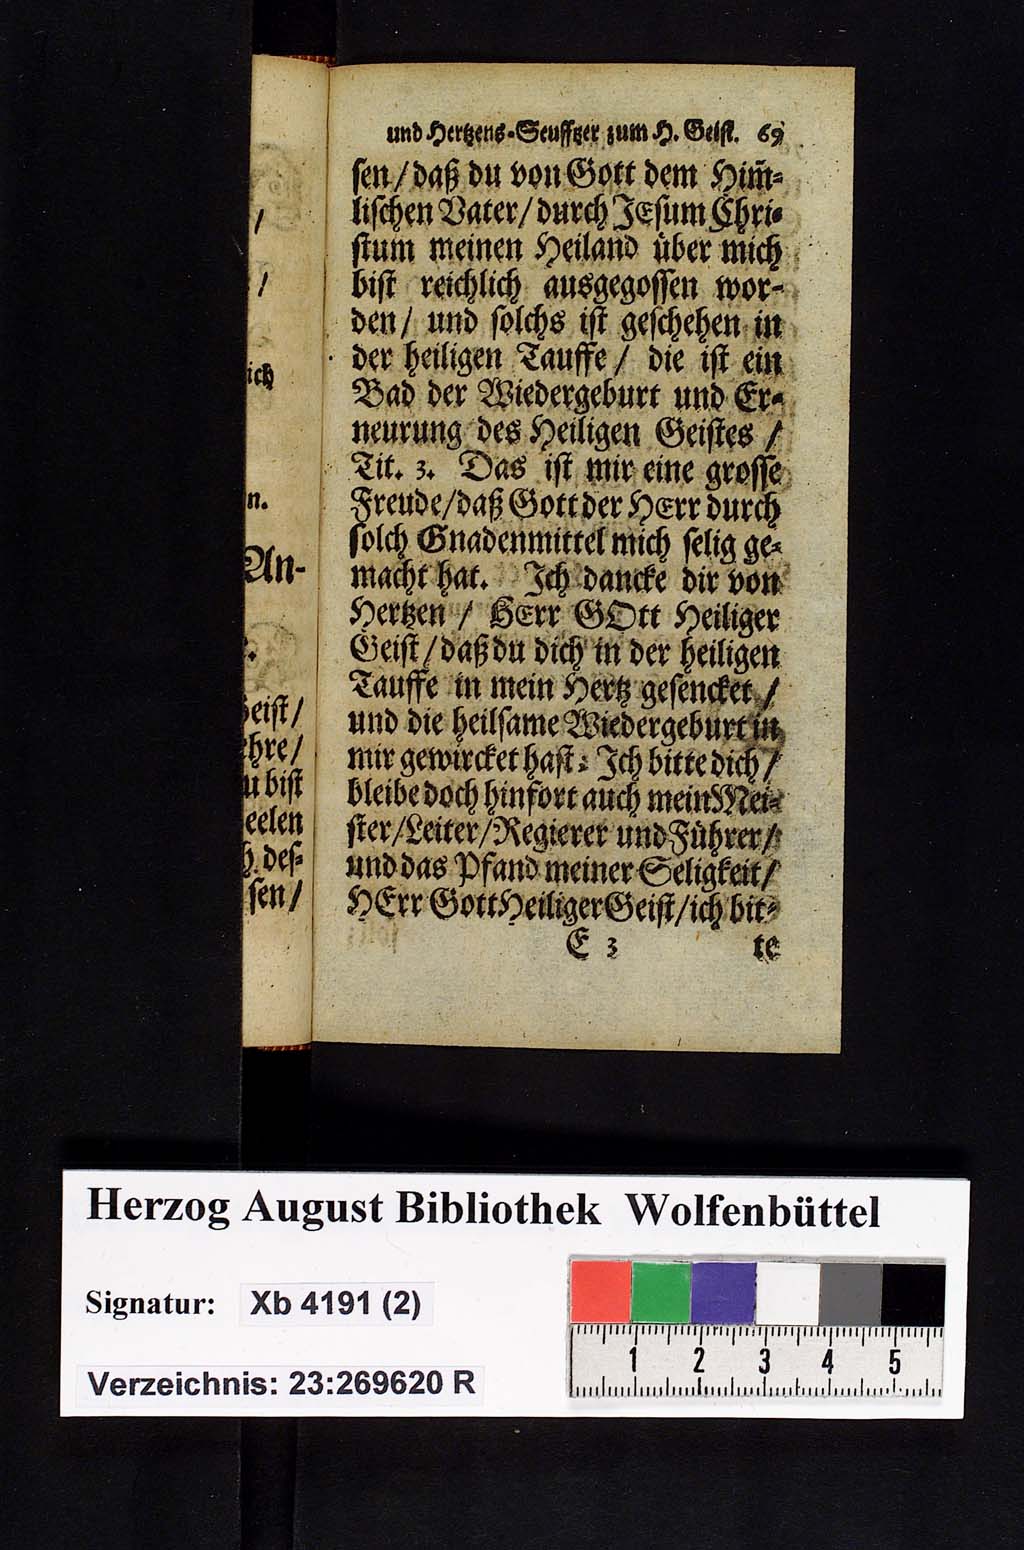 und Hertzens-Seufftzer zum H. Geist. 69
sen/ daß du von Gott dem Him̃-
lischen Vater/ durch JEsum Chri-
stum meinen Heiland über mich
bist reichlich ausgegossen wor-
den/ und solchs ist geschehen in
der heiligen Tauffe/ die ist ein
Bad der Wiedergeburt und Er-
neurung des Heiligen Geistes /
Tit. 3. Das ist mir eine grosse
Freude/ daß Gott der HErr durch
solch Gnadenmittel mich selig ge-
macht hat. Ich dancke dir von
Hertzen / HErr GOtt Heiliger
Geist/ daß du dich in der heiligen
Tauffe in mein Hertz gesencket /
und die heilsame Wiedergeburt in
mir gewircket hast: Ich bitte dich/
bleibe doch hinfort auch mein Mei-
ster/ Leiter/ Regierer und Führer/
und das Pfand meiner Seligkeit/
HErr Gott Heiliger Geist/ ich bit-
E 3 te
/
/
ich
n.
An-
Geist/
ehre/
u bist
eelen
h des-
sen/
Herzog August Bibliothek Wolfenbüttel
Signatur: Xb 4191 (2)
Verzeichnis: 23:269620 R
1 2 3 4 5